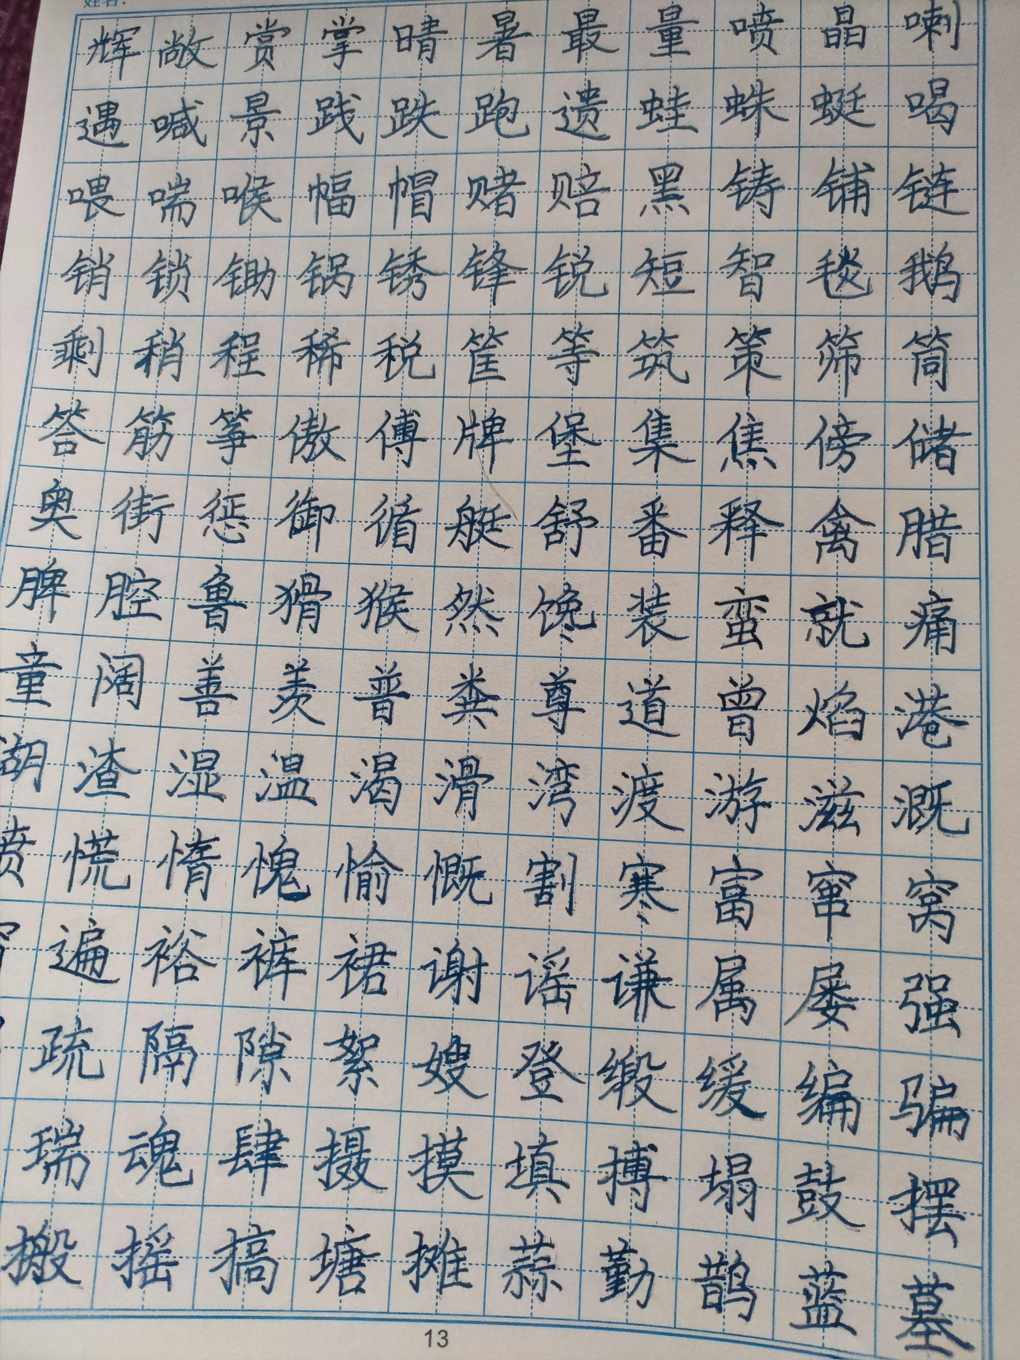 姓名：
辉敞赏掌晴暑最量喷晶喇
遇喊景践跌跑遗蛙蛛蜓喝
喂喘喉幅帽赌赔黑铸铺链
销锁锄锅锈锋锐短智毯鹅
剩稍程稀税筐等筑策筛筒
答筋筝傲傅牌堡集焦傍储
奥街惩御循艇舒番释禽腊
脾腔鲁猾猴然馋装蛮就痛
童阔善羡普粪尊道曾焰港
湖渣湿温渴滑湾渡游滋溉
愤慌惰愧愉慨割寒富窜窝
遍裕裤裙谢谣谦属屡强
疏隔隙絮嫂登缎缓编骗
瑞魂肆摄摸填搏塌鼓摆
搬摇搞塘摊蒜勤鹊蓝墓
13